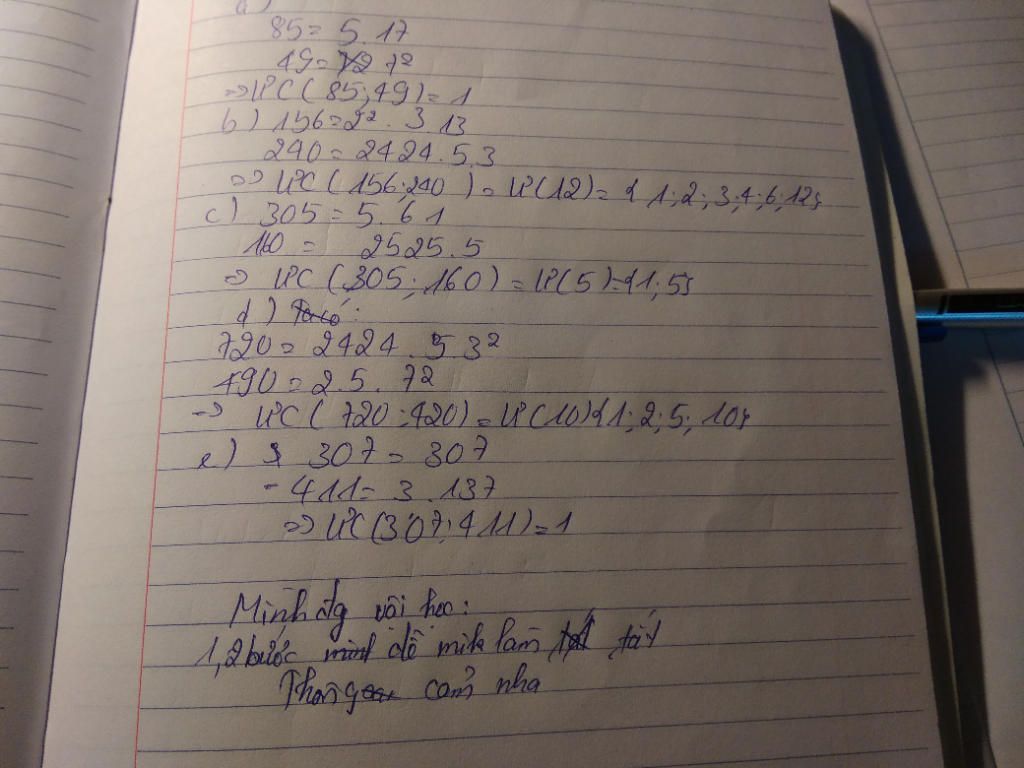 a)
85 = 5.17
49 = 7²
=> ƯC(85;49) = 1
b) 156 = 2². 3.13
240 = 2424.5.3
=> ƯC(156;240) = Ư(12) = {1;2;3;4;6;12}
c) 305 = 5.61
160 = 2525.5
=> ƯC(305;160) = Ư(5) = {1;5}
d) Ta có:
720 = 2424.5.3²
490 = 2.5.72
=> ƯC(720;420) = Ư(10){1;2;5;10}
e) 307 = 307
- 411 = 3.137
=> ƯC(307;411) = 1
Mình đg vội học:
1,2 bước dễ mik làm tắt
Thông cảm nha